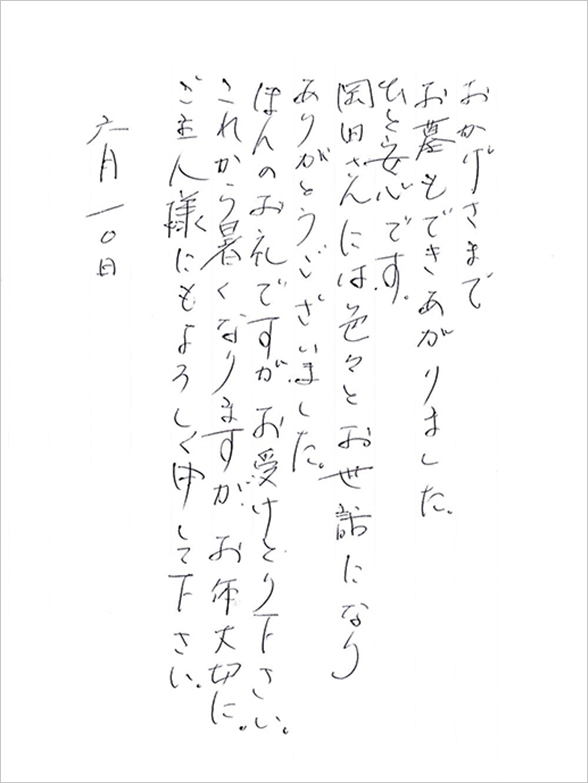 おかげさまで
お墓もできあがりました。
ひと安心です。
岡田さんには色々とお世話になり
ありがとうございました。
ほんのお礼ですが お受けとり下さい。
これから暑くなりますが、お体大切に。
ご主人様にもよろしく申して下さい。
六月一〇日